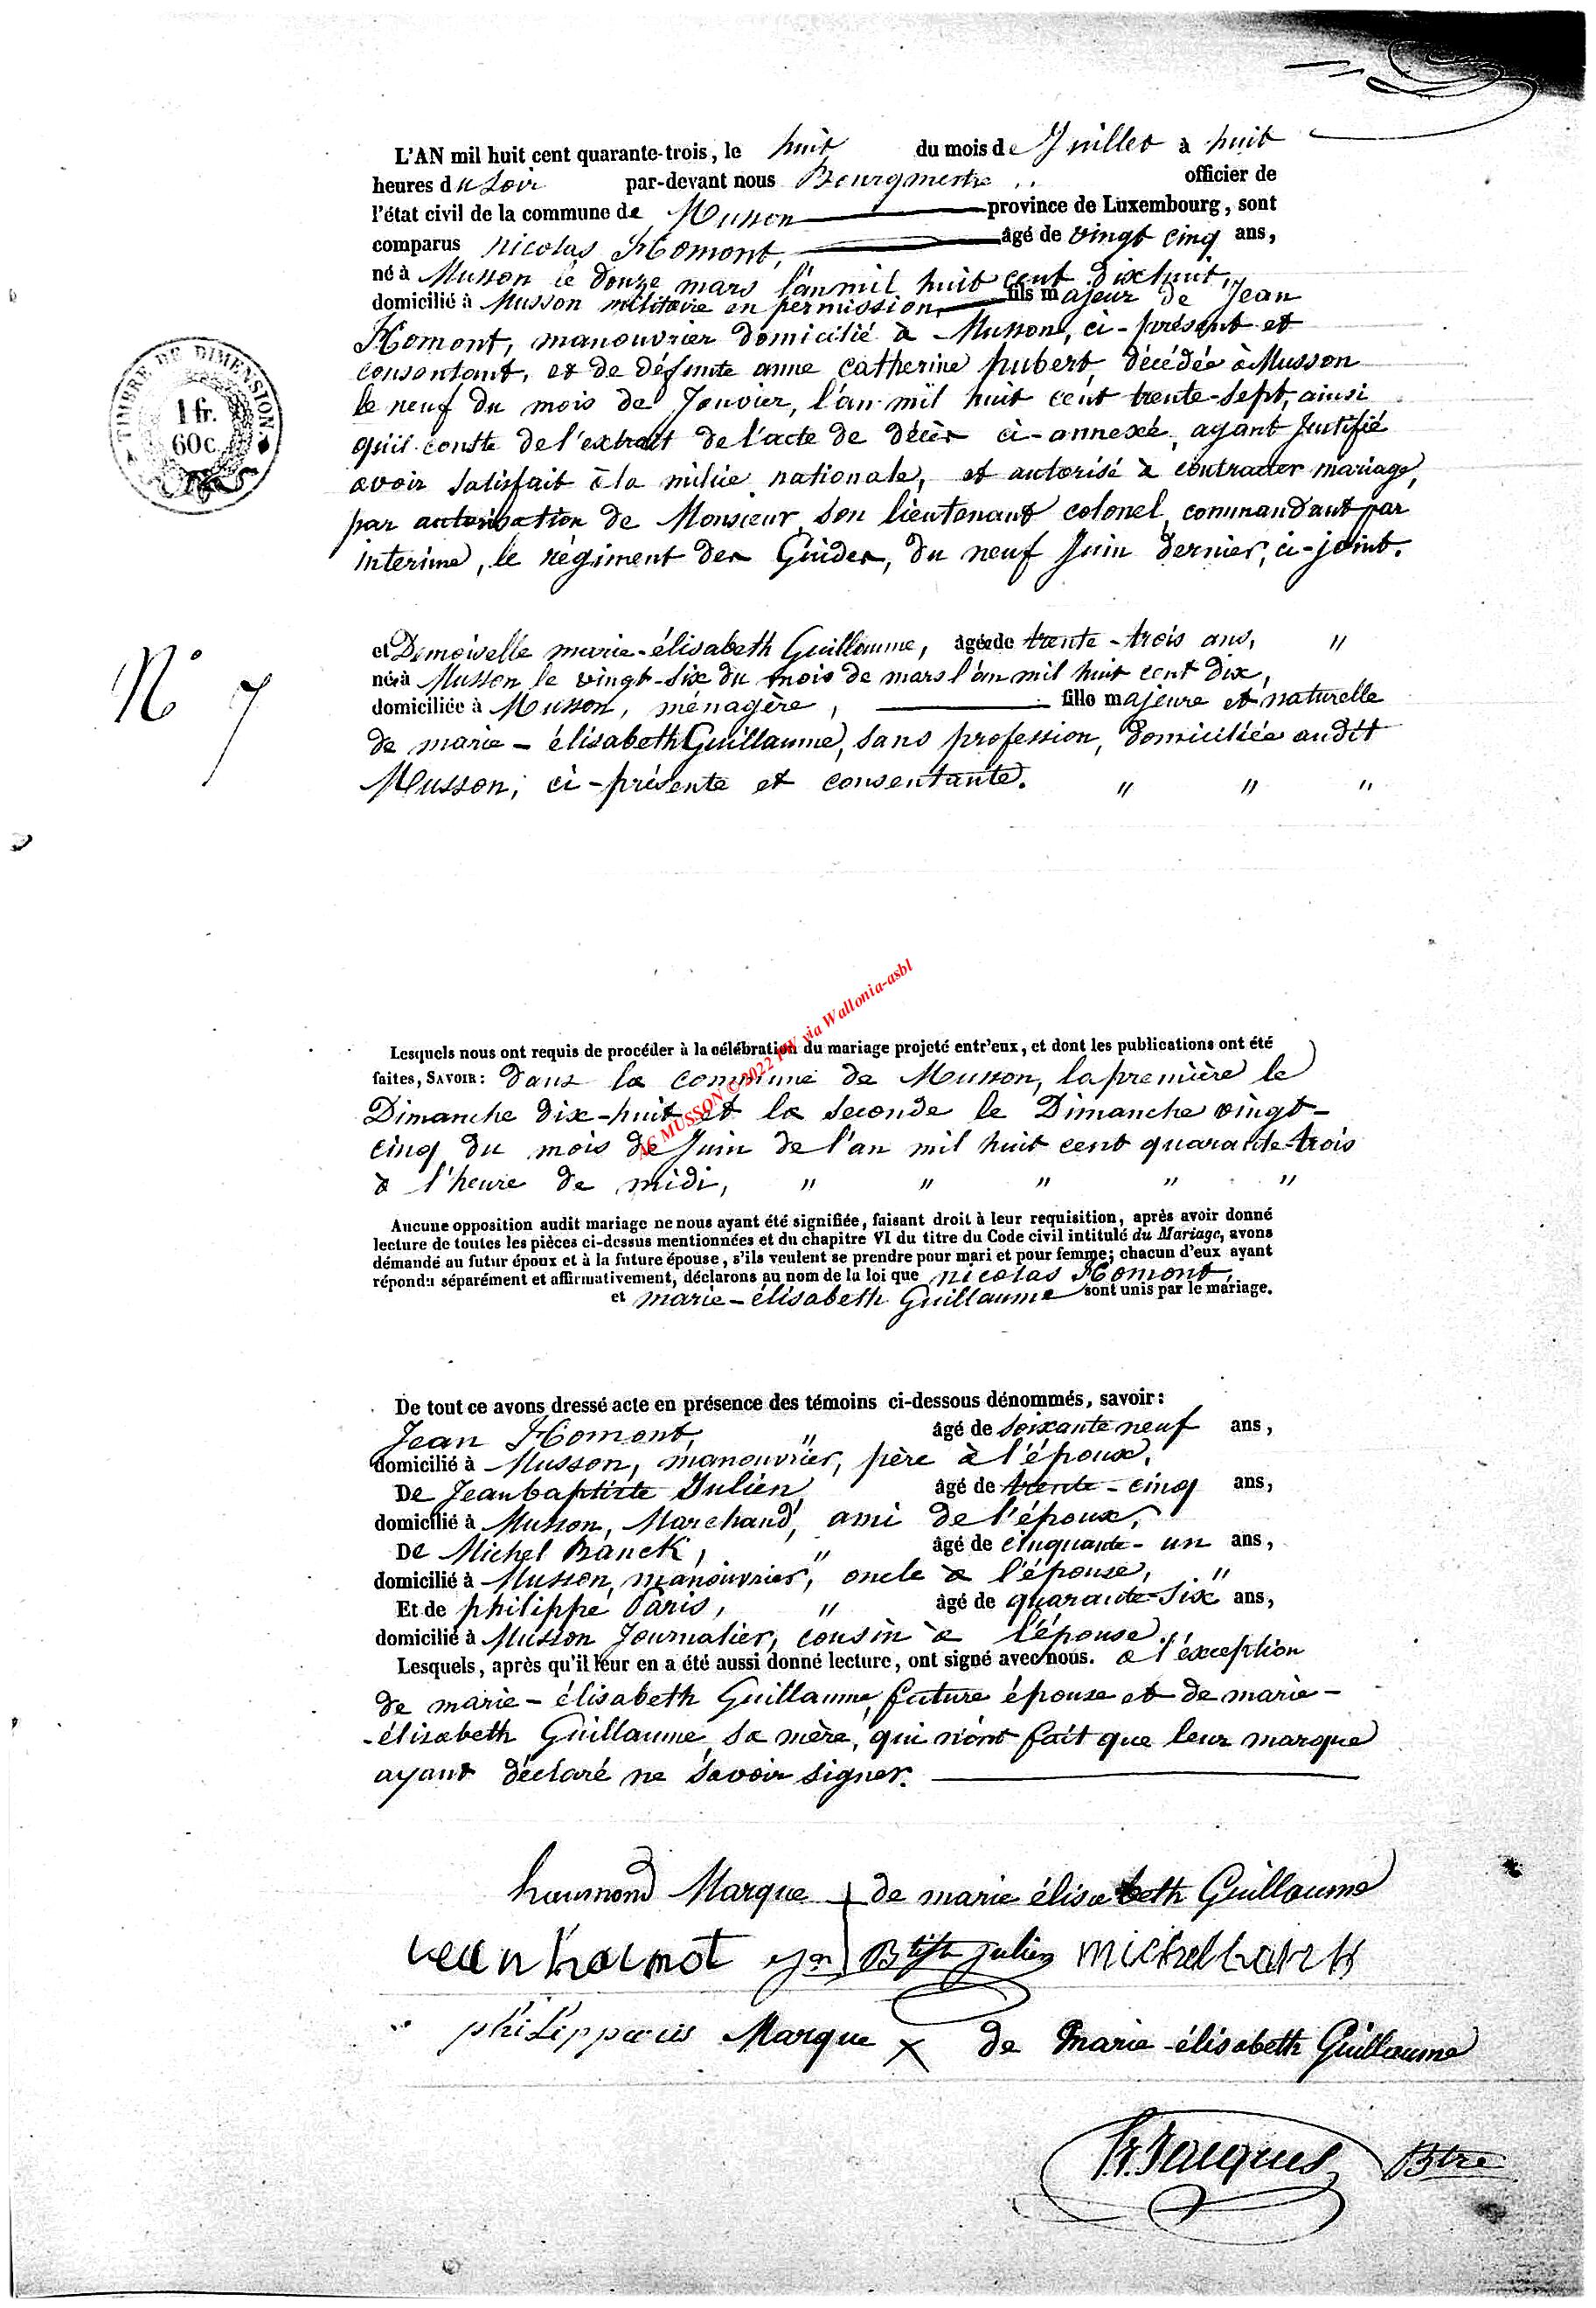 L'AN mil huit cent quarante-trois, le huit du mois de Juillet à huit
heures du Soir par-devant nous Bourgmestre officier de
l'état civil de la commune de Musson province de Luxembourg, sont
comparus nicolas Homont, âgé de vingt cinq ans,
né à Musson le douze mars l'an mil huit cent dix huit,
domicilié à Musson militaire en permission, fils majeur de Jean
Homont, manouvrier domicilié à Musson, ci-présent et
consentant, et de défunte anne catherine hubert, décédée à Musson
le neuf du mois de Janvier, l'an mil huit cent trente-sept, ainsi
qu'il conste de l'extrait de l'acte de décès ci-annexé, ayant Justifié
avoir satisfait à la milice nationale, et autorisé à contracter mariage,
par autorisation de Monsieur son lieutenant colonel, commandant par
interime, le régiment des Guides, du neuf Juin dernier, ci-joint.
TIMBRE DE DIMENSION
1 fr.
60 c.
N° 7
et Demoiselle marie-élisabeth Guillaume, âgée de trente-trois ans, "
née à Musson le vingt-six du mois de mars l'an mil huit cent dix,
domiciliée à Musson, ménagère, fille majeure et naturelle
de marie-élisabeth Guillaume, sans profession, domiciliée audit
Musson, ci-présente et consentante. " " "
AC MUSSON © 2022 PW via Wallonia-asbl
Lesquels nous ont requis de procéder à la célébration du mariage projeté entr'eux, et dont les publications ont été
faites, SAVOIR: dans la commune de Musson, la première le
Dimanche dix-huit et la seconde le Dimanche vingt-
cinq du mois de Juin de l'an mil huit cent quarante-trois
à l'heure de midi, " " " " "
Aucune opposition audit mariage ne nous ayant été signifiée, faisant droit à leur requisition, après avoir donné
lecture de toutes les pièces ci-dessus mentionnées et du chapitre VI du titre du Code civil intitulé du Mariage, avons
demandé au futur époux et à la future épouse, s'ils veulent se prendre pour mari et pour femme; chacun d'eux ayant
répondu séparément et affirmativement, déclarons au nom de la loi que nicolas Homont,
et marie-élisabeth Guillaume sont unis par le mariage.
De tout ce avons dressé acte en présence des témoins ci-dessous dénommés, savoir:
Jean Homont, " âgé de soixante neuf ans,
domicilié à Musson, manouvrier, père à l'époux,
De Jean baptiste Julien âgé de trente-cinq ans,
domicilié à Musson, Marchand, ami de l'époux,
De Michel Banck, " âgé de cinquante-un ans,
domicilié à Musson, manouvrier, oncle à l'épouse, "
Et de philippe Paris, " âgé de quarante-six ans,
domicilié à Musson Journalier, cousin à l'épouse.
Lesquels, après qu'il leur en a été aussi donné lecture, ont signé avec nous. à l'éxception
de marie-élisabeth Guillaume, future épouse et de marie-
-élisabeth Guillaume, sa mère, qui n'ont fait que leur marque
ayant déclaré ne savoir signer.
haumond Marque + de marie élisabeth Guillaume
Jean haumot Jn Btiste julien michel banck
philipparis Marque x de Marie-élisabeth Guillaume
Jacques Btre